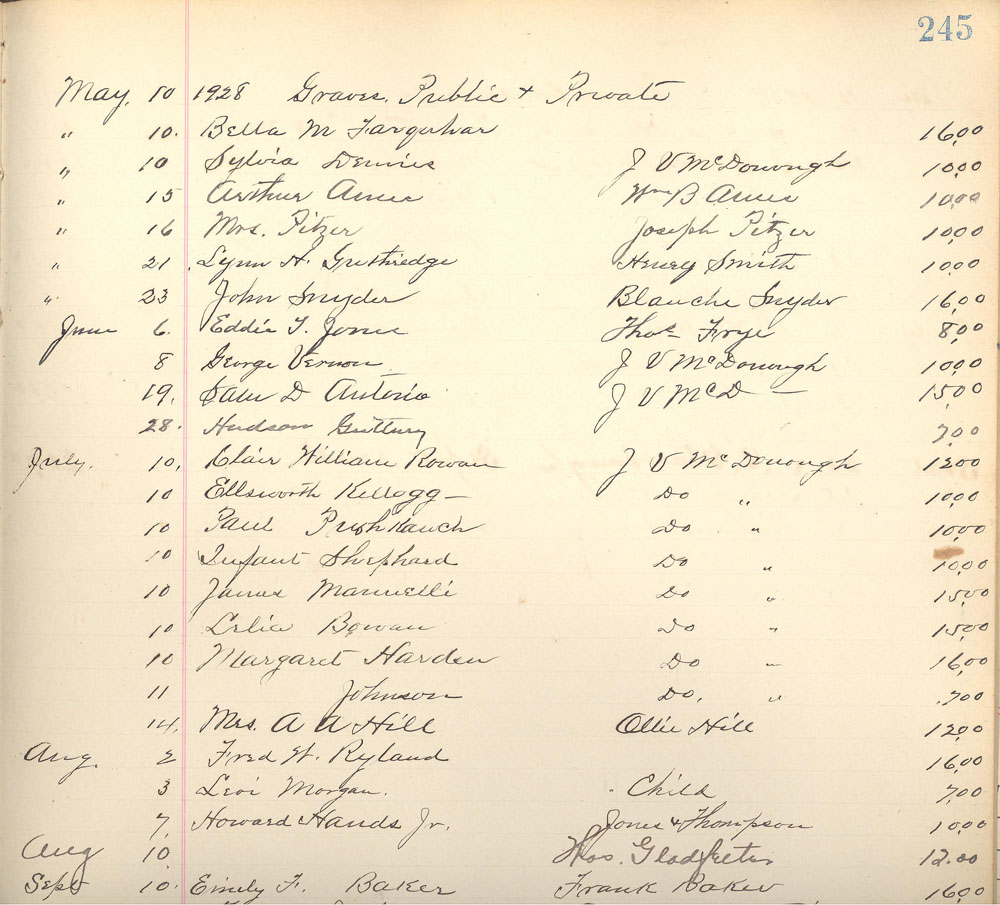 245
May. 10 1928 Graves. Public + Private
" 10. Bella M Farquhar 16,00
" 10 Sylvia Dennis J V McDonough 10,00
" 15 Arthur Ames Wm B Ames 10,00
" 16 Mrs. Pitzer Joseph Pitzer 10,00
" 21 Lynn H. Guthredge Henry Smith 10,00
" 23 John Snyder Blanche Snyder 16,00
June 6. Eddie T. Jones Thos Frye 8,00
8 George Vernon J V McDonough 10,00
19. Sam D Antonio J V McD — 15,00
28. Hudson Guttury 7,00
July. 10, Clair William Rowan J V McDonough 12,00
10 Ellsworth Kellogg — Do " 10,00
10 Paul Do " 10,00
10 Infant Shephard Do " 10,00
10 James Do " 15,00
10 Do " 15,00
10 Margaret Harden Do " 16,00
11 Johnson Do, " 7,00
14. Mrs. A A Hill Ollie Hill 12,00
Aug. 2 Fred W. Ryland 16,00
3 Levi Morgan. Child 7,00
7, Howard Hands Jr. Jones & Thompson 10,00
Aug 10, Thos. Gladfeeter 12.00
Sept 10. Emily F. Baker Frank Baker 16,00